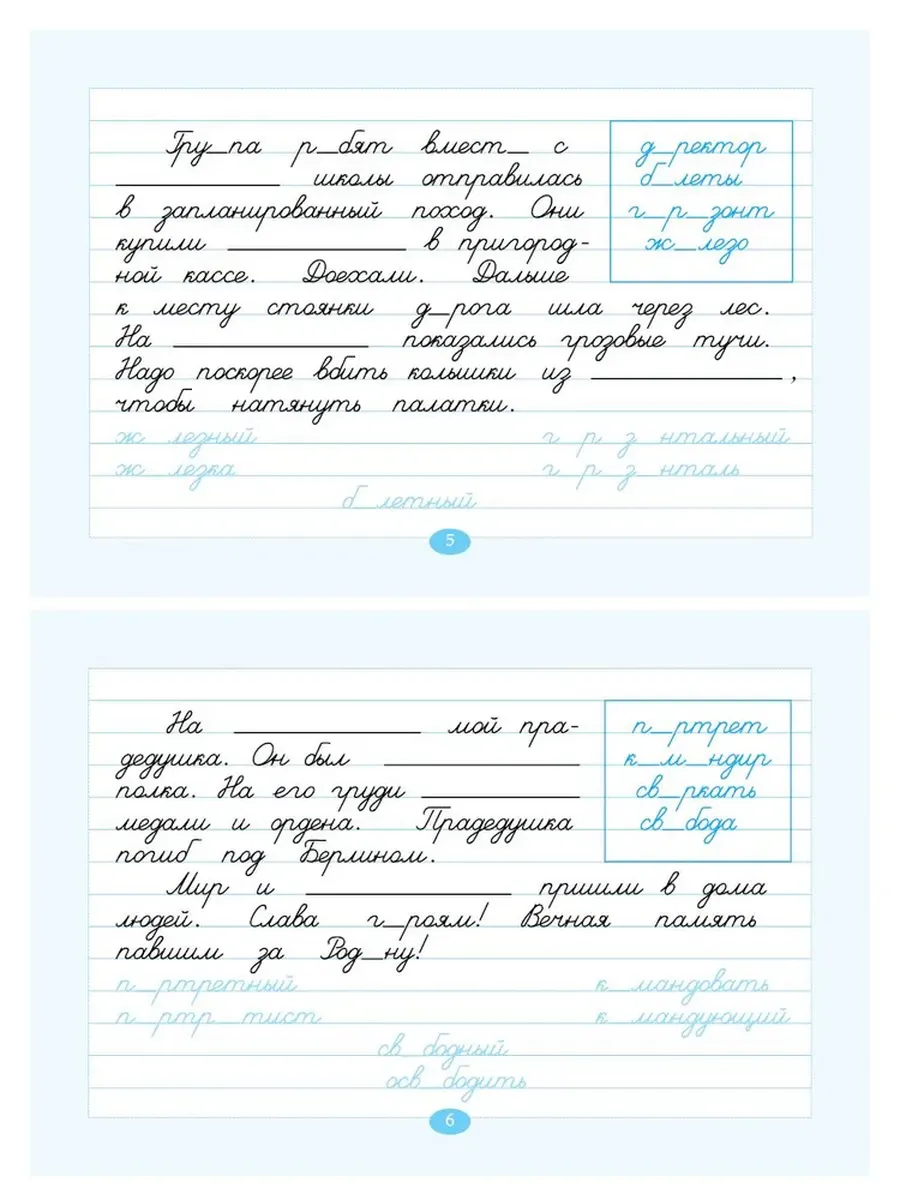 Гру_па р_бят вмест_ с
____________ школы отправилась
в запланированный поход. Они
купили ____________ в пригород-
ной кассе. Доехали. Дальше
к месту стоянки д_рога шла через лес.
На ____________ показались грозовые тучи.
Надо поскорее вбить колышки из ____________,
чтобы натянуть палатки.
д_ректор
б_леты
г_р_зонт
ж_лезо
ж_лезный г_р_з_нтальный
ж_лезка г_р_з_нталь
б_летный
5
На ____________ мой пра-
дедушка. Он был ____________
полка. На его груди ____________
медали и ордена. Прадедушка
погиб под Берлином.
Мир и ____________ пришли в дома
людей. Слава г_роям! Вечная память
павшим за Род_ну!
п_ртрет
к_м_ндир
св_ркать
св_бода
п_ртретный к_мандовать
п_ртр_тист к_мандующий
св_бодный
осв_бодить
6